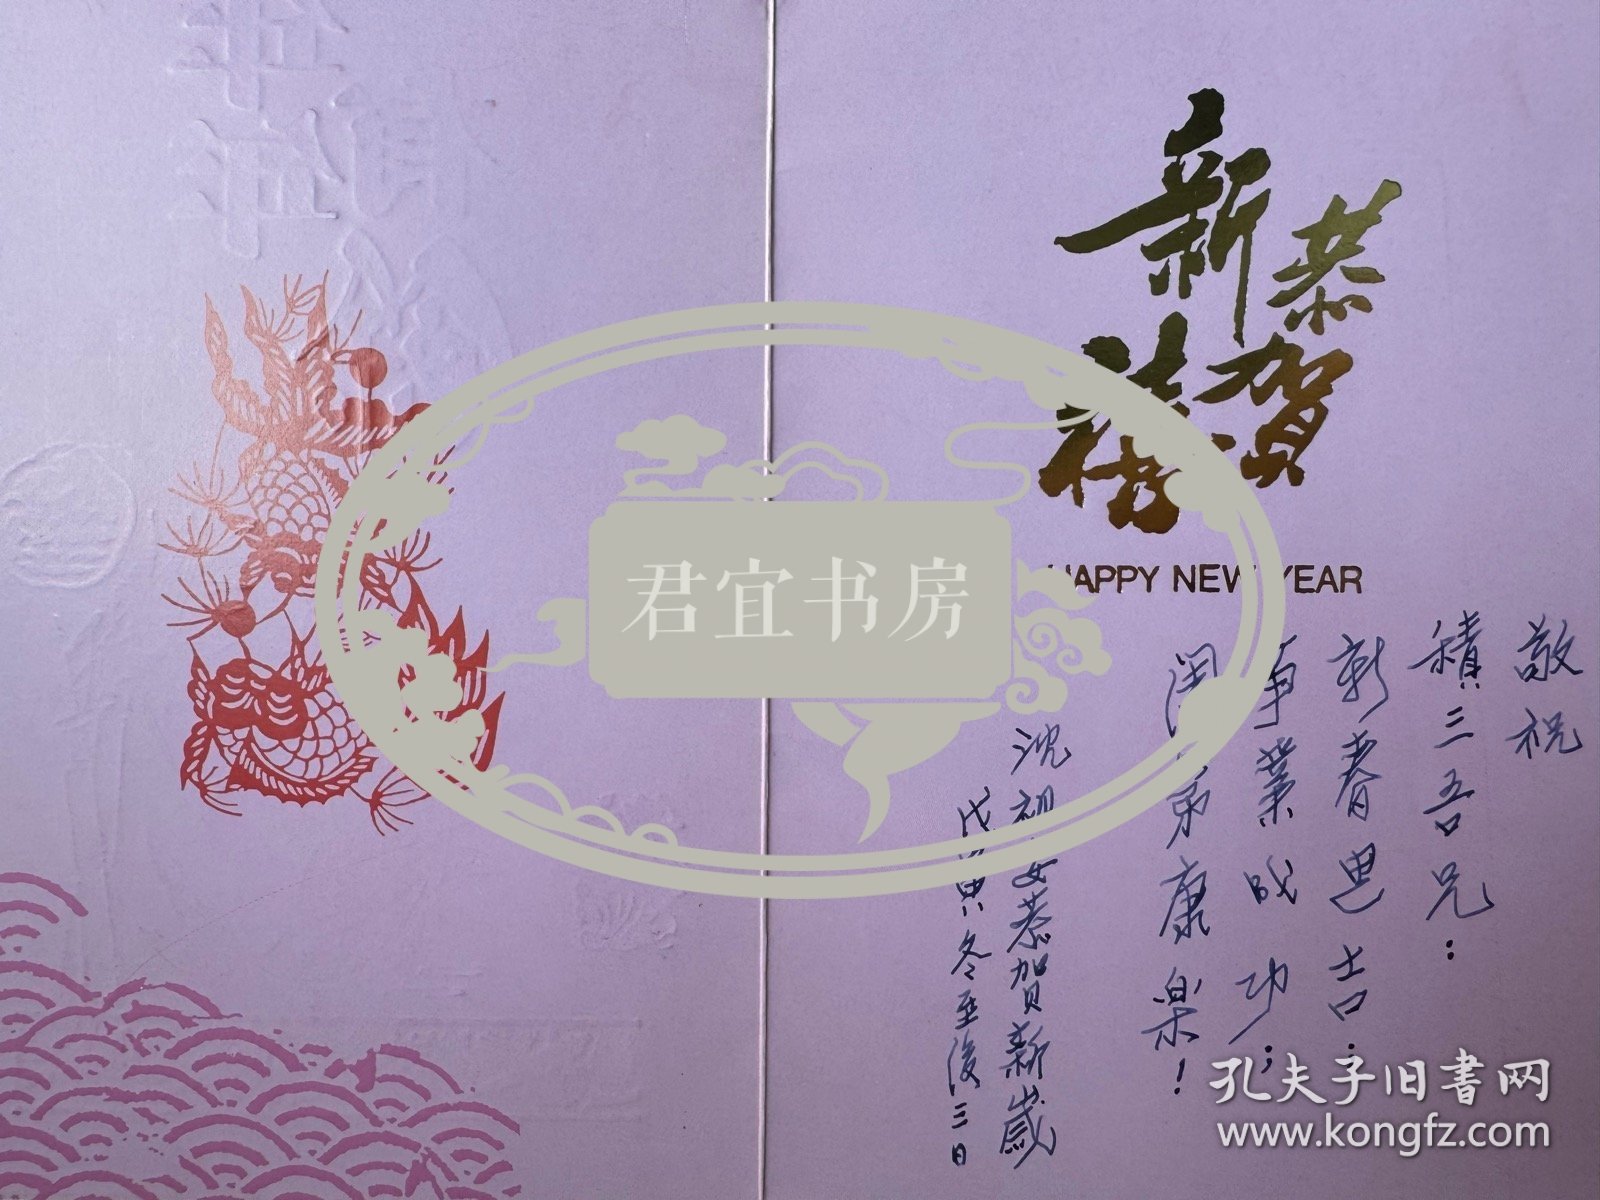 恭賀
新禧
HAPPY NEW YEAR
敬祝
積三吾兄：
新春迪吉；
事業成功；
闔第康樂！
沈初安恭賀新歲
戊寅冬至後三日
君宜书房
孔夫子旧書网
www.kongfz.com